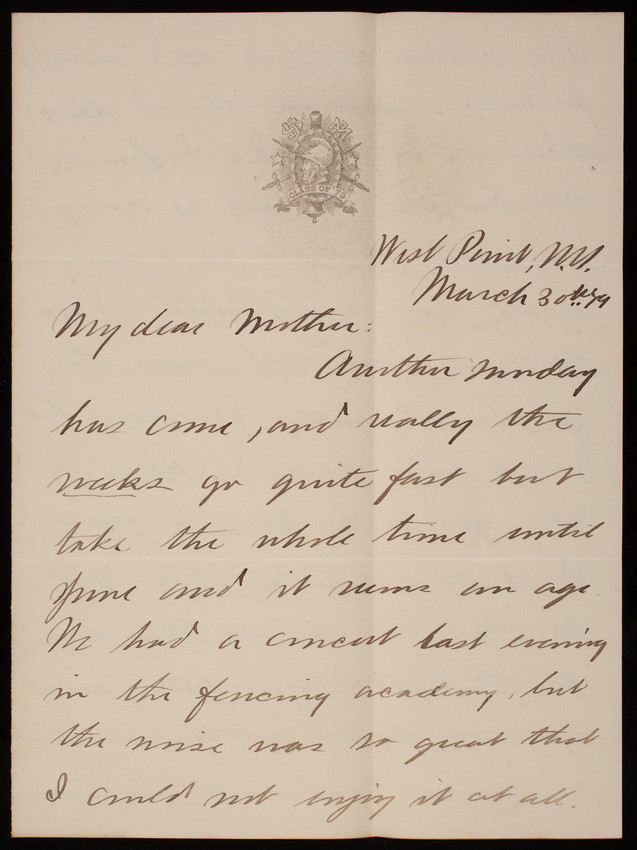 CLASS OF '79
West Point, N.Y.
March 30th 79
My dear Mother:
Another Sunday
has come, and really the
weeks go quite fast but
take the whole time until
June and it seems an age.
We had a concert last evening
in the fencing academy, but
the noise was so great that
I could not enjoy it at all.